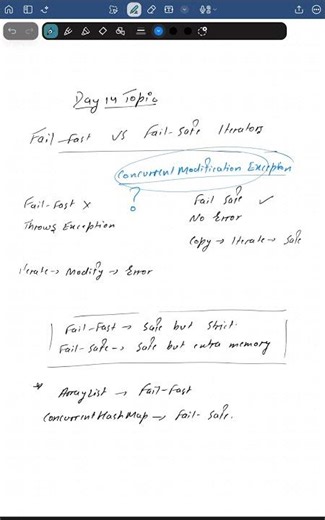 Day 14 Topic
Fail-Fast vs Fail-Safe Iterators
Concurrent Modification Exception
?
Fail-Fast X
Fail Safe ✓
Throws Exception
No Error
Copy → Iterate → Safe
Iterate → Modify → Error
Fail-Fast → Safe but Strict.
Fail-Safe → Safe but extra memory
* ArrayList → Fail-Fast
ConcurrentHashMap → Fail-Safe.